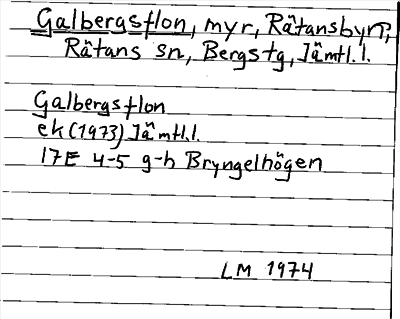 Galbergsflon, myr, Rätansbyn,
Rätans sn, Bergs tg, Jämtl.l.
Galbergsflon
ek (1973) Jämtl.l.
17E 4-5 g-h Bryngelhögen
LM 1974